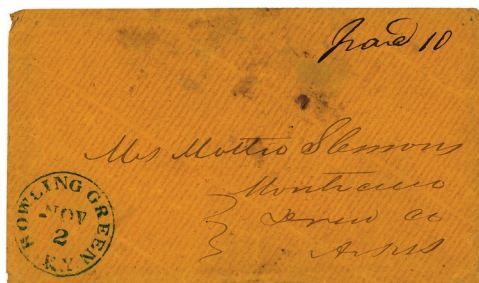 Paid 10
Mrs Mattie Slemons
Monticello
Drew Co
Arks
BOWLING GREEN
NOV
2
KY.